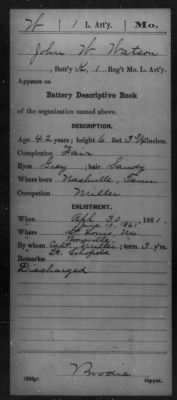 W | 1 L. Art'y. | Mo.
John W. Watson
, Batt'y K, 1 Reg't Mo. L. Art'y.
Appears on
Battery Descriptive Book
of the organization named above.
DESCRIPTION.
Age 42 years; height 6 feet 3¾ inches.
Complexion Fair
Eyes Grey, hair Sandy
Where born Nashville, Tenn
Occupation Miller
ENLISTMENT.
When Apl 30, 1861.
June 10, 1861
Where St Louis, Mo.
Booneville
By whom Capt. Miller; term 3 y'rs.
Lt. Schofield
Remarks:
Discharged
Brodie
Copyist.